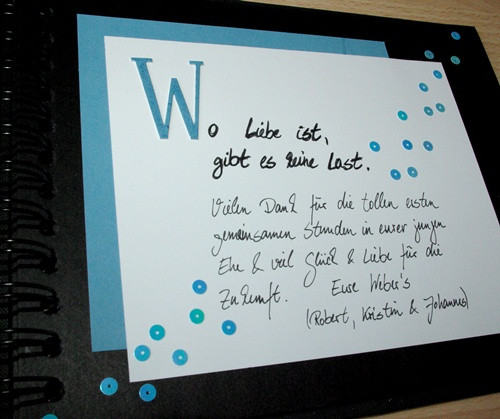 Wo Liebe ist,
gibt es keine Last.
Vielen Dank für die tollen ersten
gemeinsamen Stunden in eurer jungen
Ehe & viel Glück & Liebe für die
Zukunft. Eure Weber's
(Robert, Kristin & Johannes)